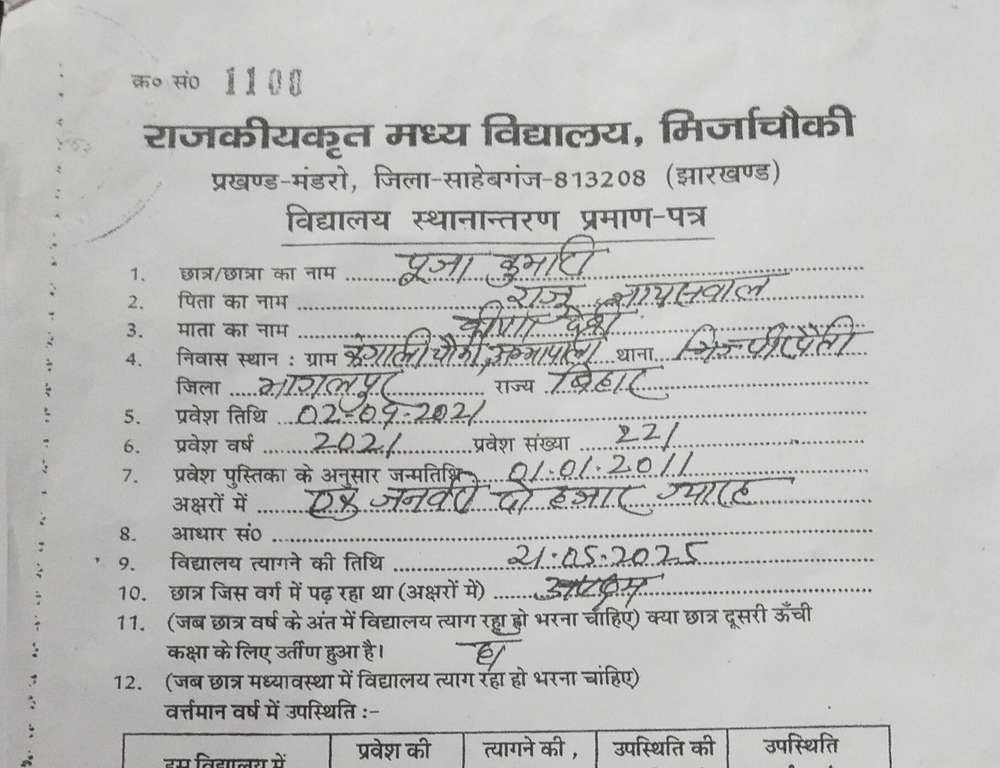 क्र० सं० 1100
राजकीयकृत मध्य विद्यालय, मिर्जाचौकी
प्रखण्ड-मंडरो, जिला-साहेबगंज-813208 (झारखण्ड)
विद्यालय स्थानान्तरण प्रमाण-पत्र
1. छात्र/छात्रा का नाम पूजा कुमारी
2. पिता का नाम राजू जायसवाल
3. माता का नाम देवी
4. निवास स्थान : ग्राम थाना पीरपैंती
जिला भागलपुर राज्य बिहार
5. प्रवेश तिथि 02-09-2021
6. प्रवेश वर्ष 2021 प्रवेश संख्या 221
7. प्रवेश पुस्तिका के अनुसार जन्मतिथि 01.01.2011
अक्षरों में एक जनवरी दो हजार ग्यारह
8. आधार सं०
9. विद्यालय त्यागने की तिथि 21.05.2025
10. छात्र जिस वर्ग में पढ़ रहा था (अक्षरों में) अष्टम
11. (जब छात्र वर्ष के अंत में विद्यालय त्याग रहा हो भरना चाहिए) क्या छात्र दूसरी ऊँची
कक्षा के लिए उर्तीण हुआ है। हाँ
12. (जब छात्र मध्यावस्था में विद्यालय त्याग रहा हो भरना चांहिए)
वर्त्तमान वर्ष में उपस्थिति :-
इस विद्यालय में प्रवेश की त्यागने की , उपस्थिति की उपस्थिति